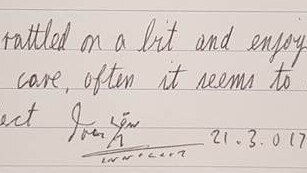 rattled on a bit and enjoy
care, often it seems to
ect
INNOCENT 21.3.017